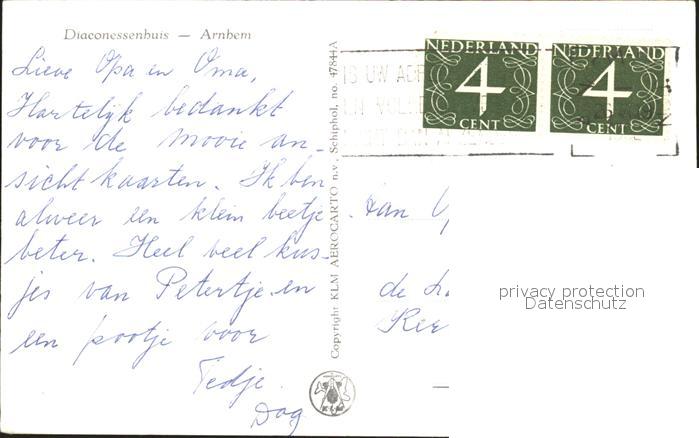 Diaconessenhuis — Arnhem
Lieve Opa en Oma,
Hartelijk bedankt
voor de mooie an-
sichtkaarten. Ik ben
alweer een klein beetje
beter. Heel veel kus-
jes van Petertje en
een pootje voor
Tedje.
Dag
Copyright KLM AEROCARTO n.v., Schiphol, no. 47844A
KLM
IS UW ADR
NEDERLAND
4
CENT
NEDERLAND
4
CENT
Aan
de
privacy protection
Datenschutz